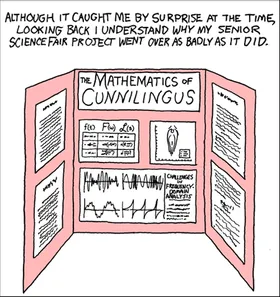 ALTHOUGH IT CAUGHT ME BY SURPRISE AT THE TIME,
LOOKING BACK I UNDERSTAND WHY MY SENIOR
SCIENCE FAIR PROJECT WENT OVER AS BADLY AS IT DID.
THE MATHEMATICS OF
CUNNILINGUS
CHALLENGES
IN
FREQUENCY-
DOMAIN
ANALYSIS